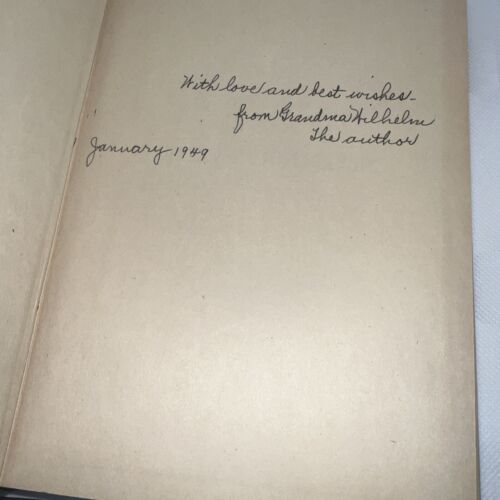 With love and best wishes-
from Grandma Wilhelm
The author
January 1949